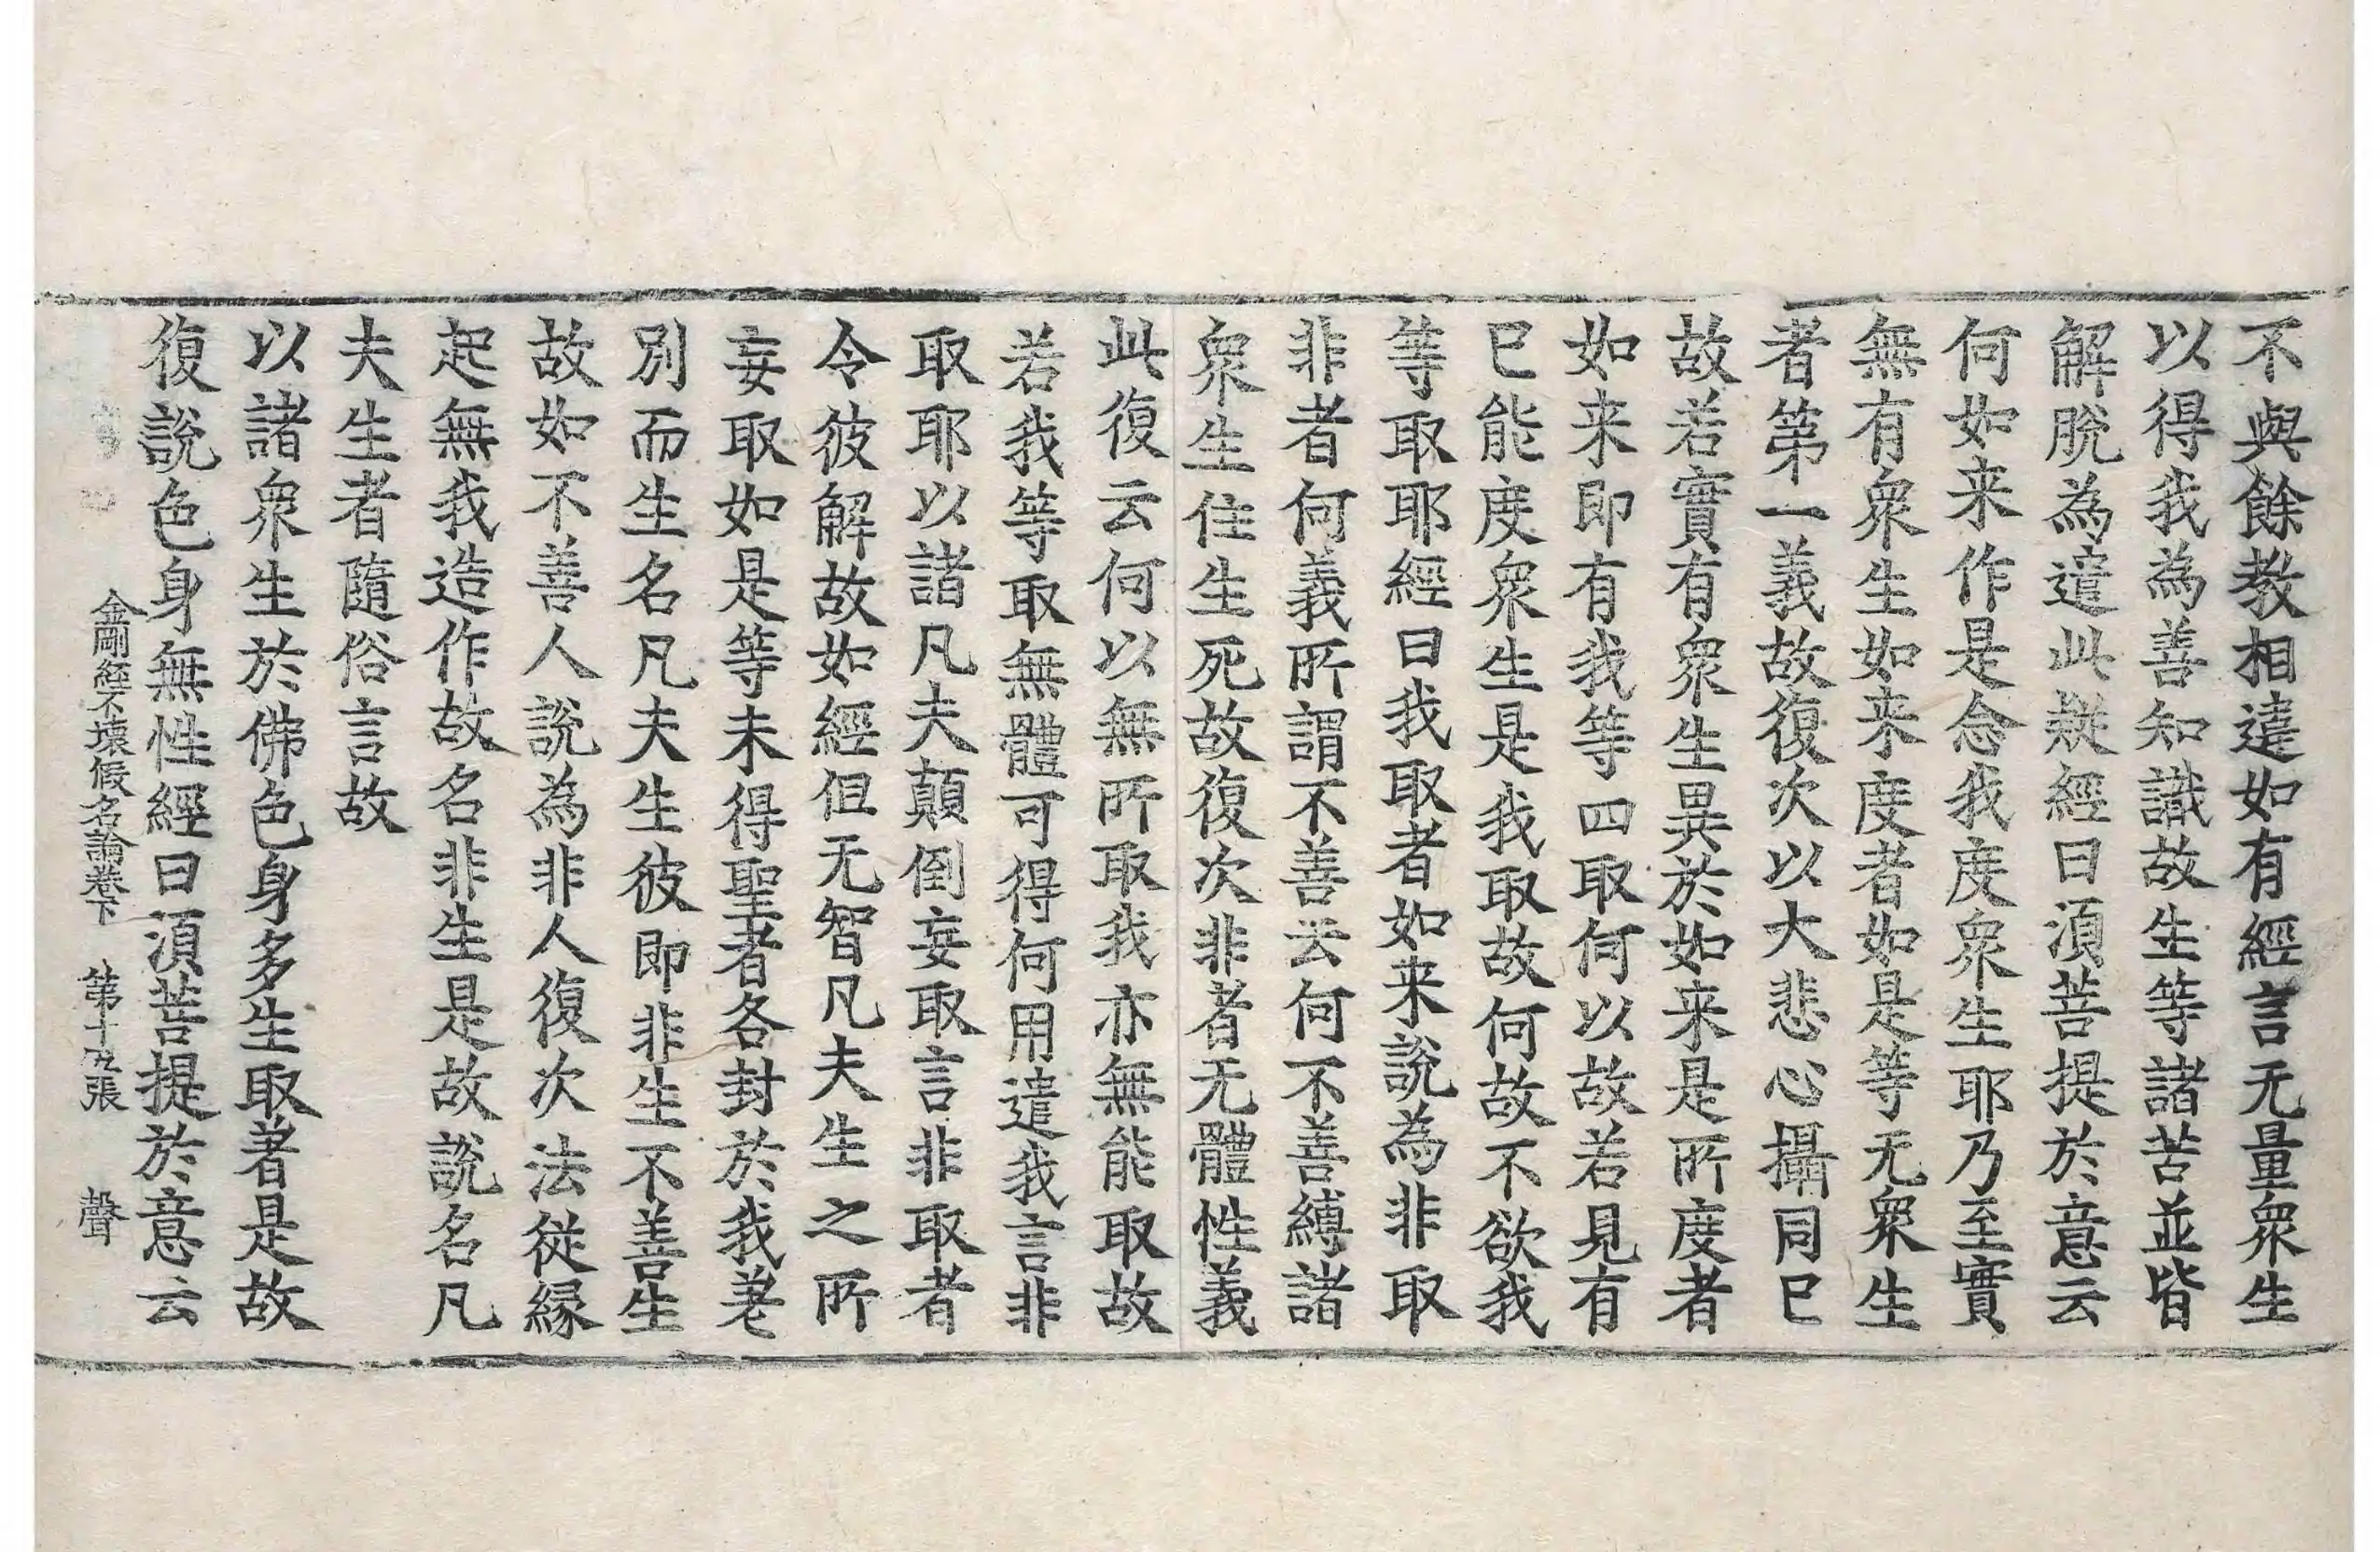 不與餘教相違如有經言无量衆生
以得我為善知識故生等諸苦並皆
解脫為遣此疑經曰湏菩提於意云
何如来作是念我度衆生耶乃至實
無有衆生如来度者如是等无衆生
者第一義故復次以大悲心攝同已
故若實有衆生異於如来是所度者
如来即有我等四取何以故若見有
已能度衆生是我取故何故不欲我
等取耶經曰我取者如来說為非取
非者何義所謂不善云何不善縛諸
衆生住生死故復次非者无體性義
此復云何以無所取我亦無能取故
若我等取無體可得何用遣我言非
取耶以諸凡夫顛倒妄取言非取者
令彼解故如經但无智凡夫生之所
妄取如是等未得聖者各封於我差
別而生名凡夫生彼即非生不善生
故如不善人說為非人復次法從緣
起無我造作故名非生是故說名凡
夫生者隨俗言故
以諸衆生於佛色身多生取著是故
復說色身無性經曰湏菩提於意云
金剛經不壞假名論卷下　第十九張　聲